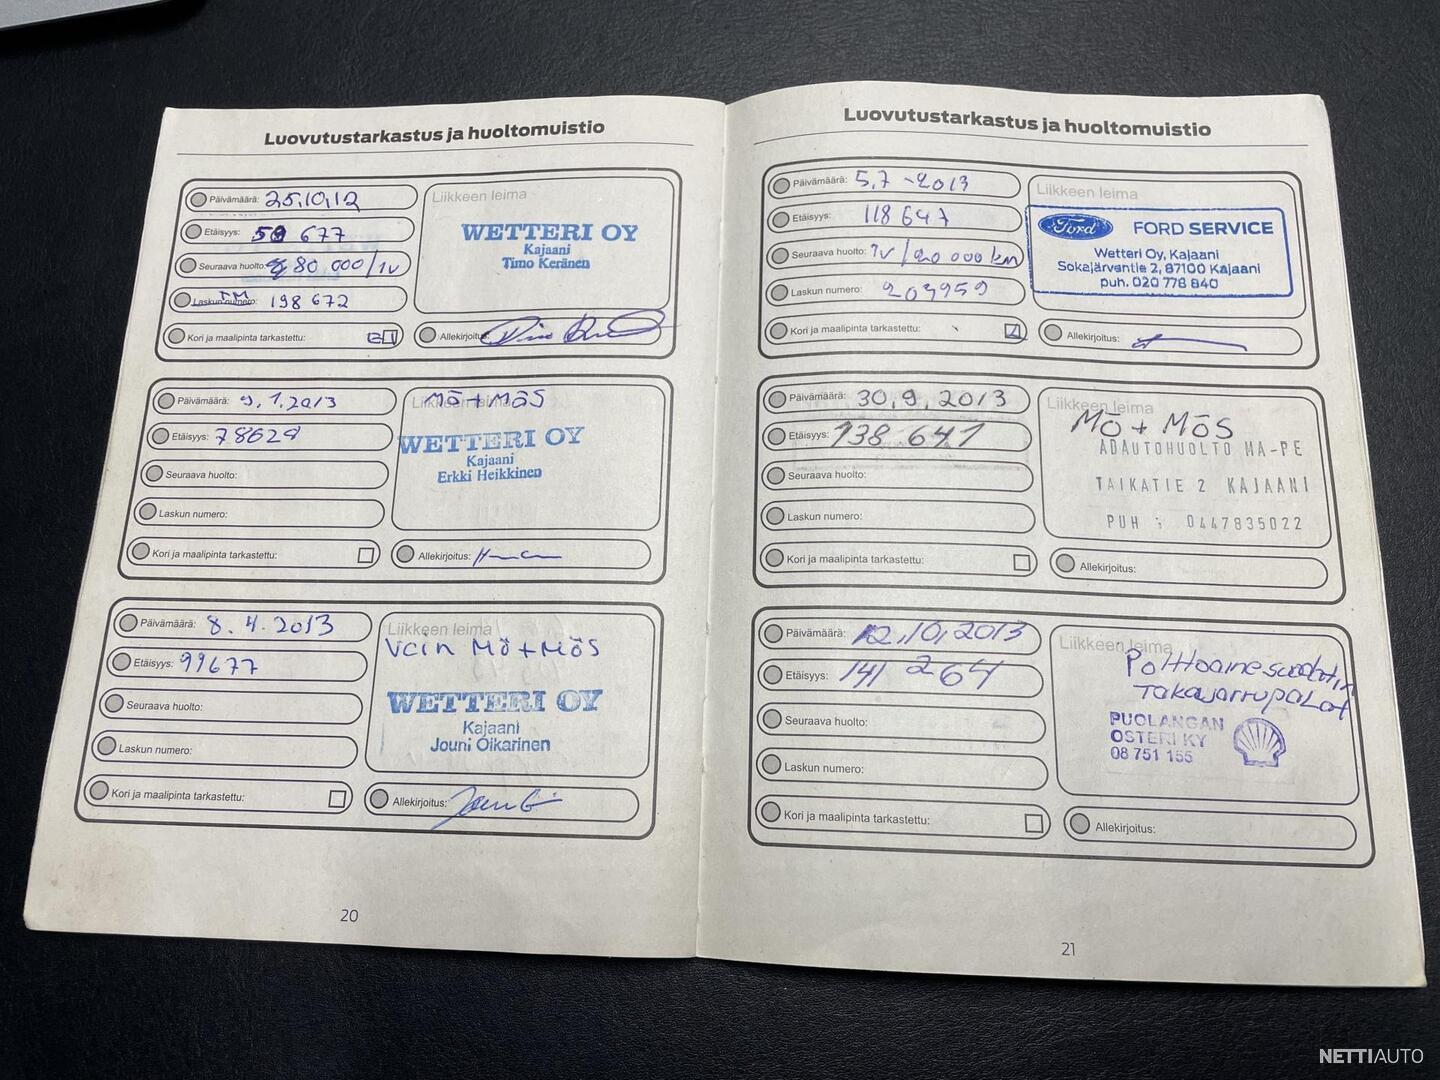 Luovutustarkastus ja huoltomuistio
Päivämäärä: 25.10.12
Etäisyys: 59 677
Seuraava huolto: 80 000/1v
Laskun numero: 198 672
TM
Kori ja maalipinta tarkastettu:
Liikkeen leima
WETTERI OY
Kajaani
Timo Keränen
Allekirjoitus:
Päivämäärä: 9.1.2013
Etäisyys: 78628
Seuraava huolto:
Laskun numero:
Kori ja maalipinta tarkastettu:
Liikkeen leima
MÖ + MÖS
WETTERI OY
Kajaani
Erkki Heikkinen
Allekirjoitus:
Päivämäärä: 8.4.2013
Etäisyys: 99677
Seuraava huolto:
Laskun numero:
Kori ja maalipinta tarkastettu:
Liikkeen leima
Vain MÖ + MÖS
WETTERI OY
Kajaani
Jouni Oikarinen
Allekirjoitus:
20
Luovutustarkastus ja huoltomuistio
Päivämäärä: 5.7-2013
Etäisyys: 118 647
Seuraava huolto: 1v/20 000 km
Laskun numero: 203959
Kori ja maalipinta tarkastettu:
Liikkeen leima
Ford FORD SERVICE
Wetteri Oy, Kajaani
Sokajärventie 2, 87100 Kajaani
puh. 020 778 840
Allekirjoitus:
Päivämäärä: 30.9.2013
Etäisyys: 138.641
Seuraava huolto:
Laskun numero:
Kori ja maalipinta tarkastettu:
Liikkeen leima
MÖ + MÖS
ADAUTOHUOLTO MA-PE
TAIKATIE 2 KAJAANI
PUH : 0447835022
Allekirjoitus:
Päivämäärä: 12.10.2013
Etäisyys: 141 264
Seuraava huolto:
Laskun numero:
Kori ja maalipinta tarkastettu:
Liikkeen leima
Polttoainesuodatin
Takajarrupalat
PUOLANGAN
OSTERI KY
08 751 155
Allekirjoitus:
21
NETTIAUTO